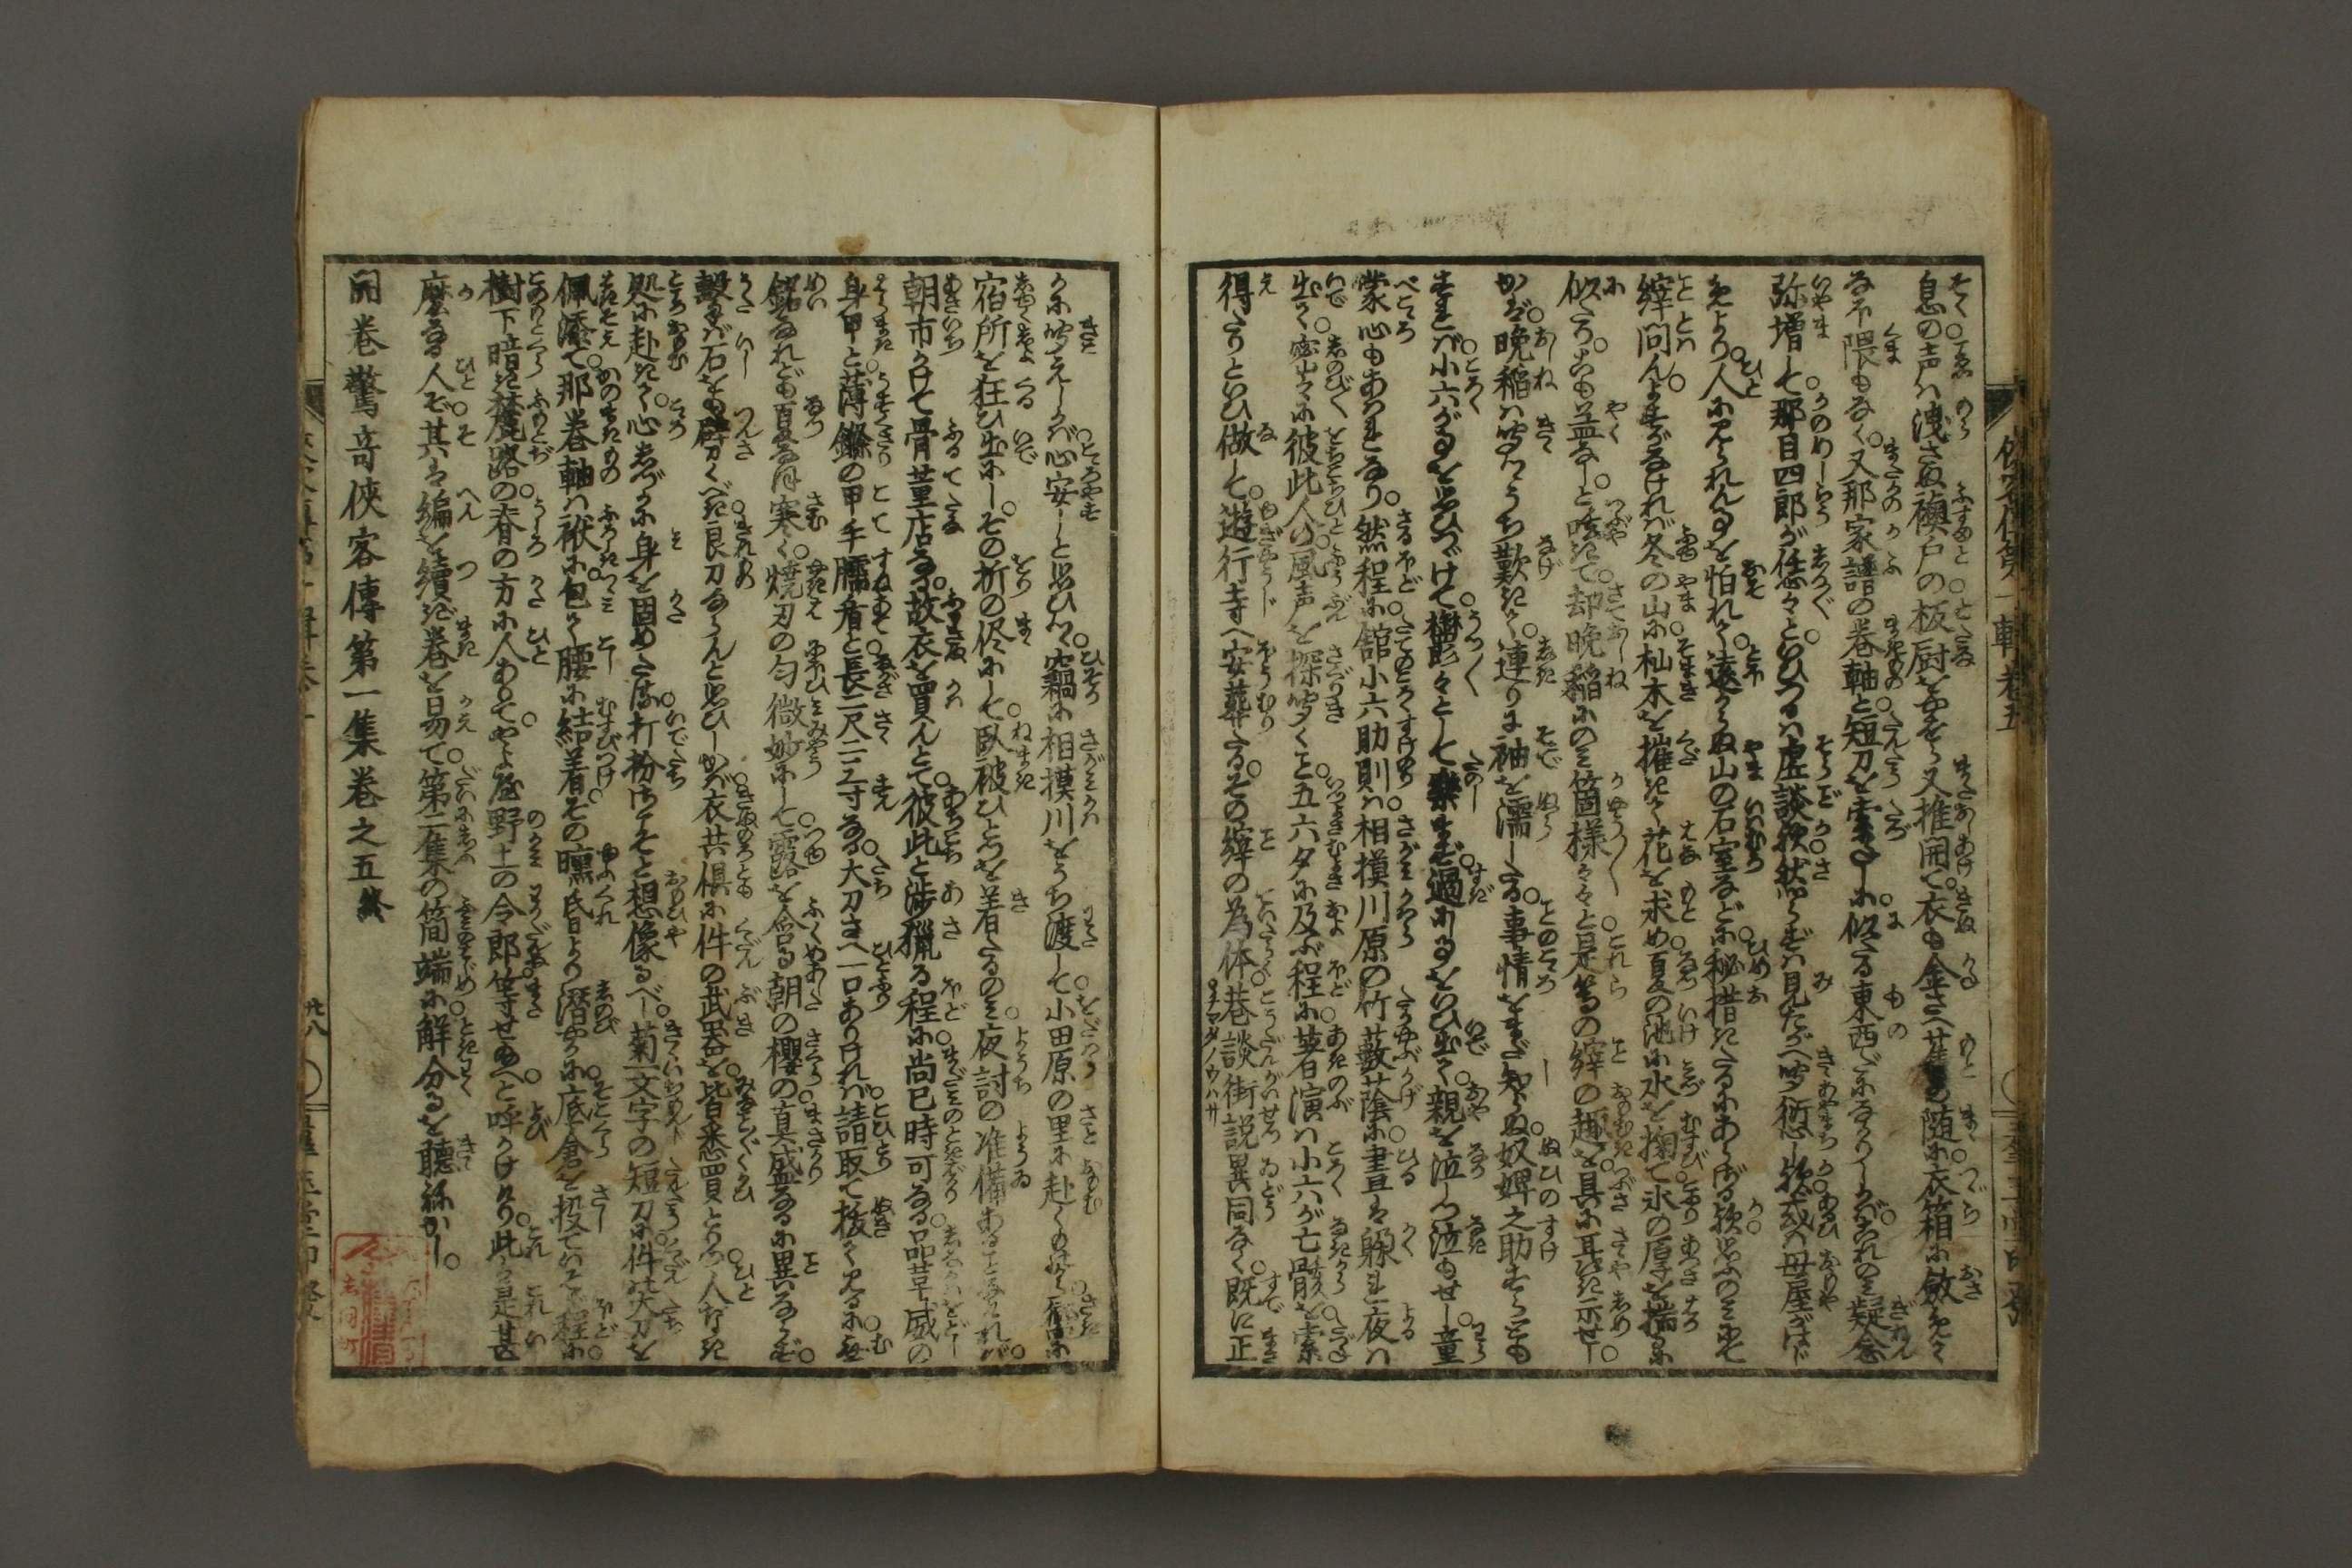 息の声は洩さぬ襖戸の板厨を
又推開て衣も金さへ
随に衣箱に斂めて
なほ隈もなく又那家譜の巻軸と短刀を索るに似たる東西だになかりしかばこれのみ疑念
弥増して那目四郎が恁々といひつるは虚談歟然らずは見たがへ
歟或は母屋がはじ
めより人に見られん事を怕れて遠からぬ山の石室などに秘措きたるにあらずる歟思ふのみにて
縡問んよすがなければ冬の山に杣木を摧きて花を求め夏の池に水を掬て氷の厚を揣るに
似たりこも益なしと呟きて却晩稲にのみ箇様々々と是等の縡の趣を具に耳語示せし
かば晩稲は听てうち歎きて連りに袖を濡したる事情をまだ知らぬ奴婢之助すらこも
すれば小六が事を思ひつけて鬱々として楽まず過にし事をいひ出て親を泣しつ泣もせし童
蒙心もあはれなり然程に館小六助則は相摸川原の竹藪蔭に晝は躱れ夜は
出て密々に彼此人の風声を探听くに五六夕に及ぶ程に著演は小六が亡骸を索
得たりといひ做して遊行寺へ安葬たるその縡の為体巷談街説異同なく既に正
かに听えしかば心安しと思ひつつ竊に相摸川をうち渡して小田原の里に赴くも
宿所を狂ひ出にしその折の侭にして臥被ひとつを着たるのみ夜討の准備あることなければ
朝市かけて骨董店なる故衣を買んとて彼此と渉猟る程に尚巳時可なる品革威の
身甲と薄鏁の甲手臑盾と長二尺二三寸なる大刀さへ一口ありければ請取て抜て見るに無
銘なれども夏なほ寒く焼刃の匂微妙にして露を含る朝の櫻の真盛なるに異ならず
撃ば石をも劈くべき良刀ならんと思ひしかば衣共侶に件の武器を皆悉買とりつ人なき
処に赴きて心しづかに身を固めたる打扮さこそと想像るべし菊一文字の短刀に件の大刀を
佩添て那巻軸は袱に包て腰に結着その曛昏より潜やかに底倉を投ていそぐ程に
樹下暗き麓路の脊の方に人ありてやよ舘野上の令郎等せ給へと呼かけけり此は是甚
麼なる人ぞ其は編を續ぎ巻を易て第二集の簡端に解分るを聴ねかし
開巻驚奇俠客傳第一集巻之五終
俠客傳第一輯巻五
廿八